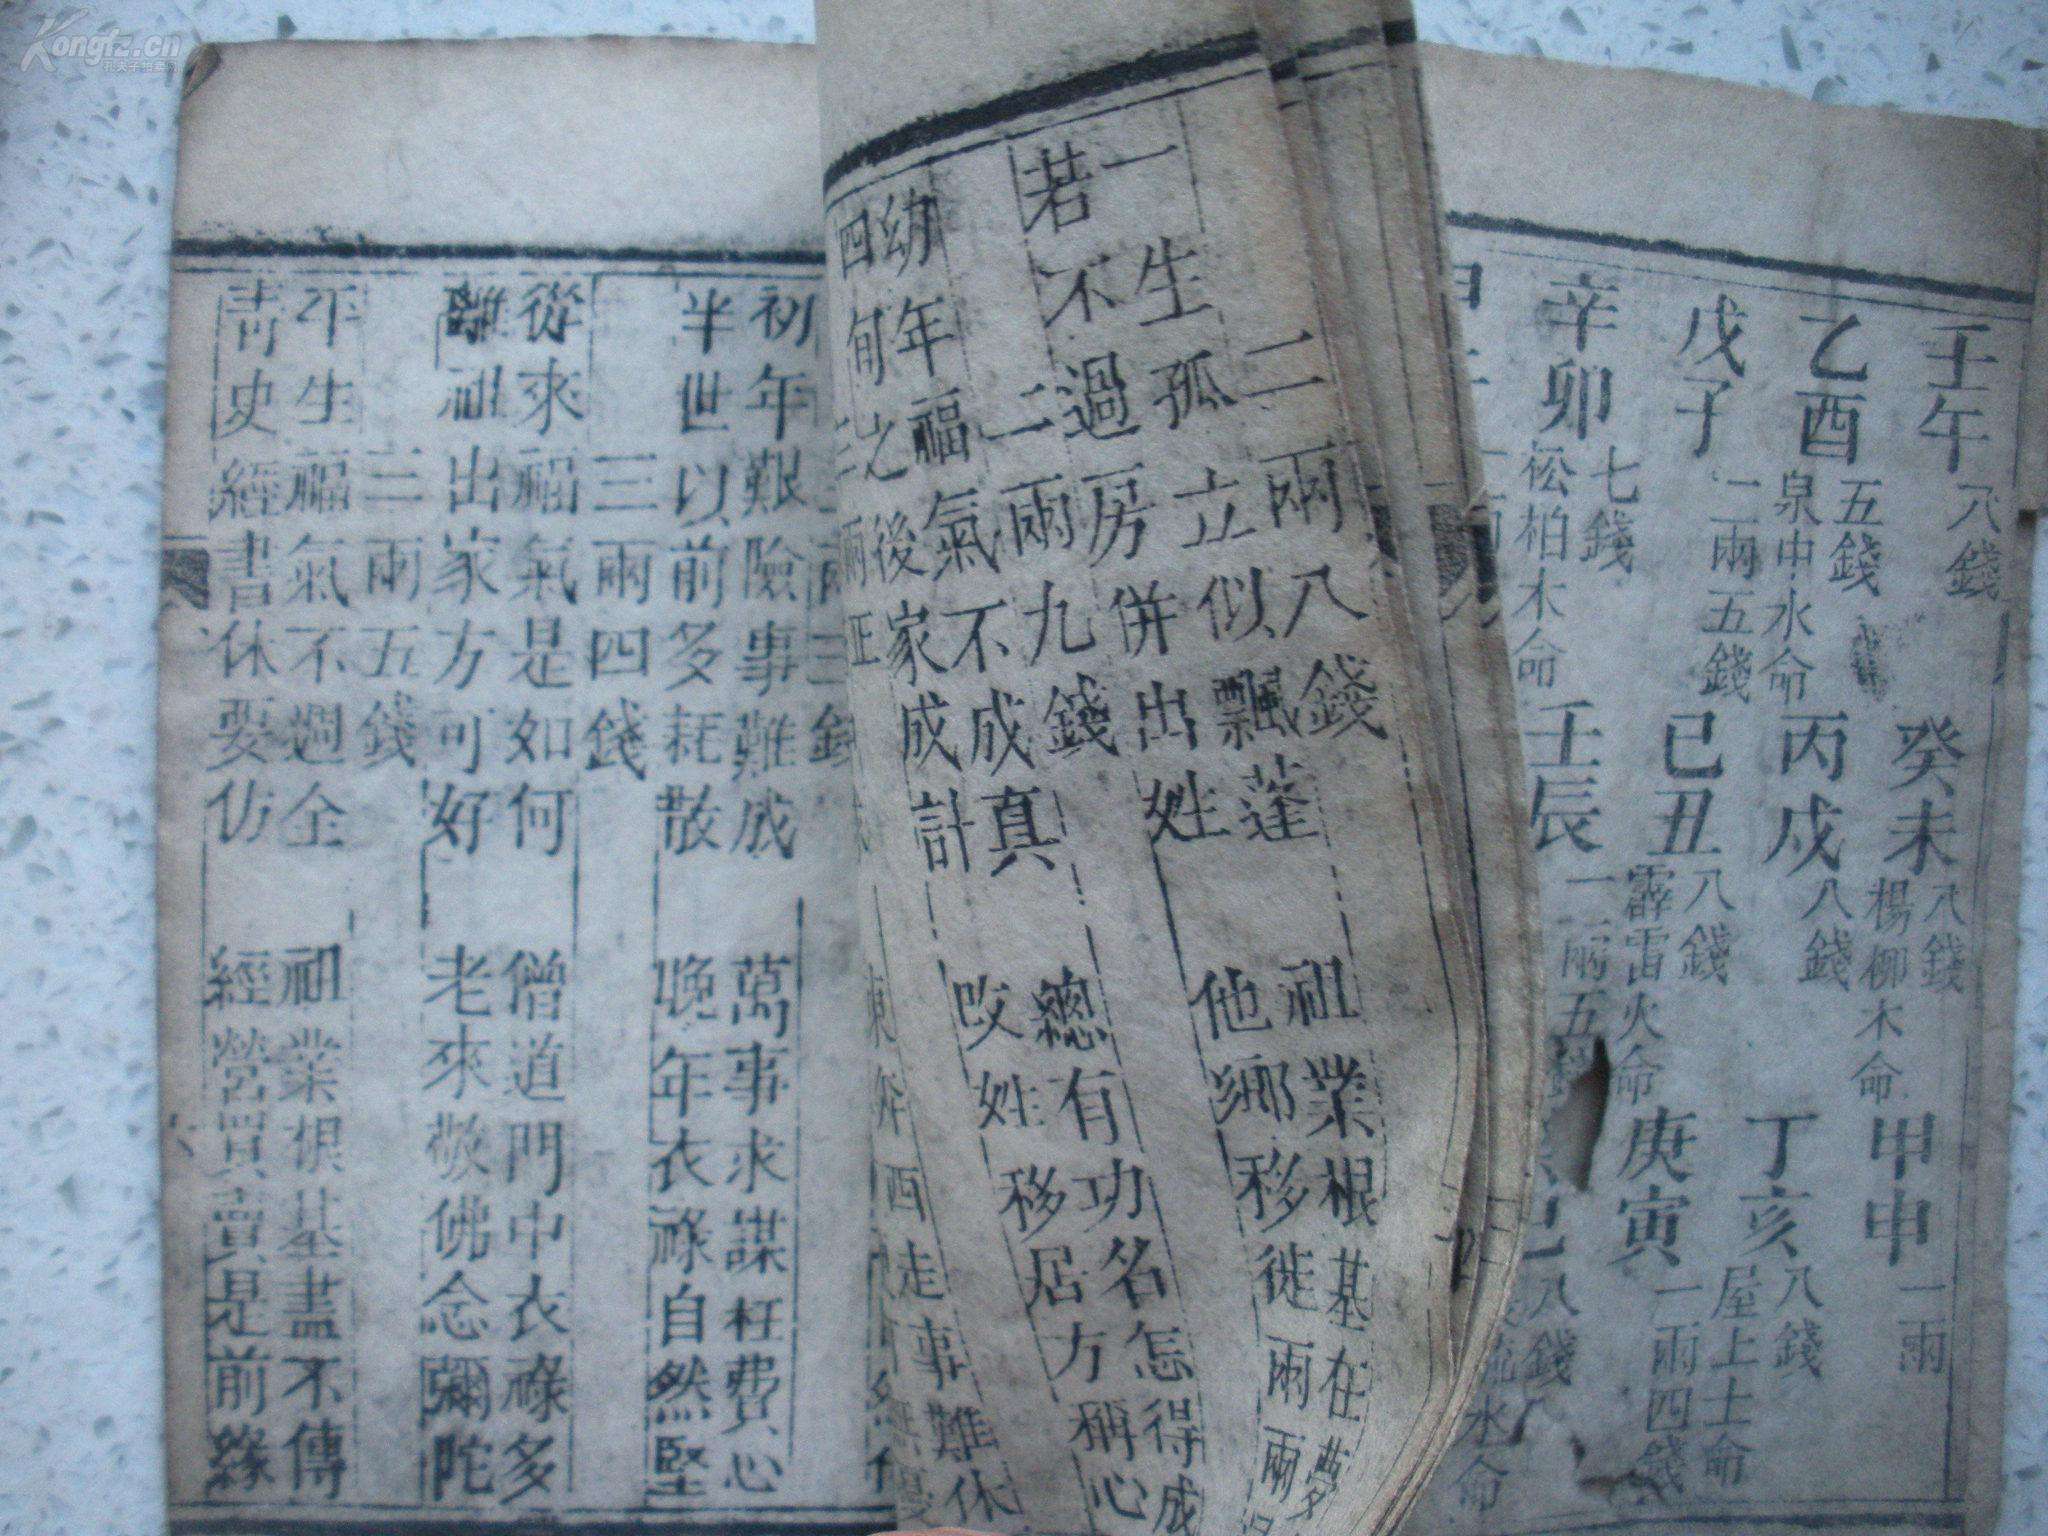 Kongfz.cn
壬午 八錢
癸未 八錢
楊柳木命
甲申 一兩
乙酉 五錢
泉中水命
丙戌 八錢
丁亥 八錢
屋上土命
戊子 一兩五錢
己丑 八錢
霹雷火命
庚寅 一兩四錢
辛卯 七錢
松柏木命
壬辰 一兩五
八錢
水命
二兩八錢
一生孤立似飄蓬 祖業根基在夢
若不過房併出姓 他鄉移徙兩兩
二兩九錢
幼年福氣不成真 總有功名怎得成
四旬之後家成計 改姓移居方稱心
三兩正
東奔西走事難休
三錢
初年艱險事難成 萬事求謀枉費心
半世以前多耗散 晚年衣祿自然堅
三兩四錢
從來福氣是如何 僧道門中衣祿多
離祖出家方可好 老來敬佛念彌陀
三兩五錢
平生福氣不週全 祖業根基盡不傳
青史經書休要仿 經營買賣是前緣